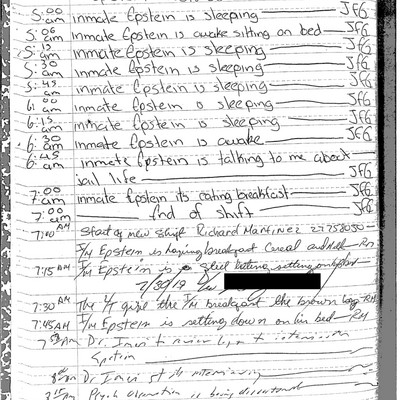 5:00 am inmate Epstein is sleeping JFG
5:06 am inmate Epstein is awake sitting on bed JFG
5:15 am inmate Epstein is sleeping JFG
5:30 am inmate Epstein is sleeping JFG
5:45 am inmate Epstein is sleeping JFG
6:00 am inmate Epstein is sleeping JFG
6:15 am inmate Epstein is sleeping JFG
6:30 am inmate Epstein is awake JFG
6:45 am inmate Epstein is talking to me about
jail life JFG
7:00 am inmate Epstein its eating breakfast JFG
7:00 am End of shift JFG
7:10 AM Start of new shift Richard Martinez
I/M Epstein is having breakfast Cereal and milk RM
7:15 AM I/M Epstein is still setting on
7/30/19
7:30 AM The I/M give the I/M breakfast the brown bag RM
7:45 AM I/M Epstein is setting down on his bed RM
Dr.
Epstein
Dr.
Psych observation is being discontinued